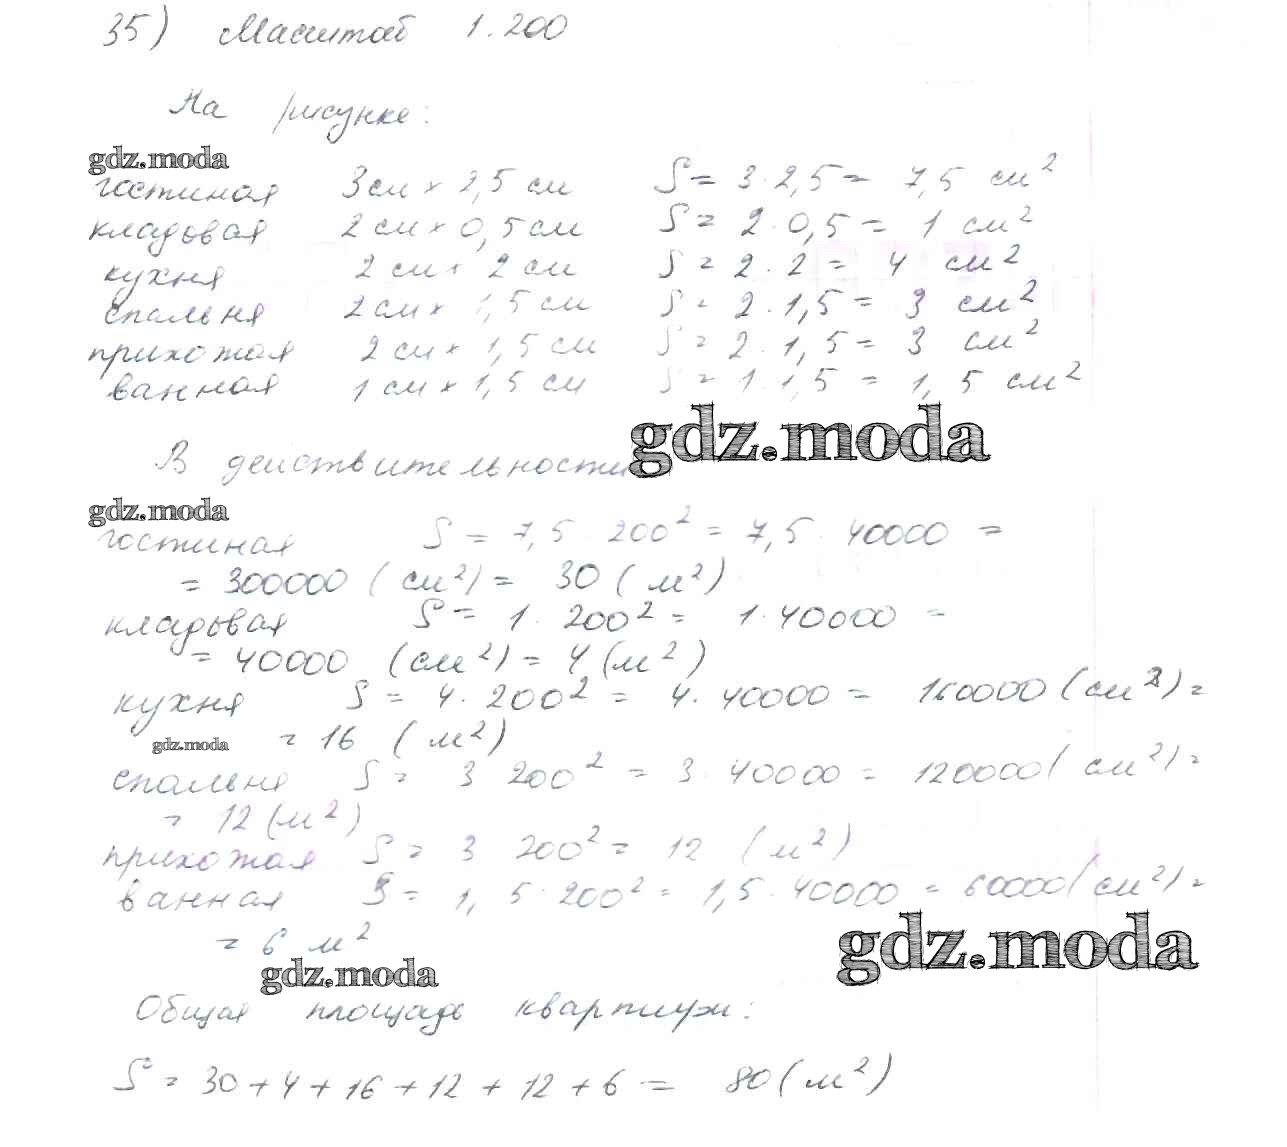 35) Масштаб 1:200
На рисунке:
gdz.moda
гостиная 3см × 2,5 см S = 3·2,5 = 7,5 см²
кладовая 2 см × 0,5 см S = 2·0,5 = 1 см²
кухня 2 см × 2 см S = 2·2 = 4 см²
спальня 2см × 1,5 см S = 2·1,5 = 3 см²
прихожая 2 см × 1,5 см S = 2·1,5 = 3 см²
ванная 1 см × 1,5 см S = 1·1,5 = 1,5 см²
gdz.moda
В действительности
gdz.moda
гостиная S = 7,5·200² = 7,5·40000 =
= 300000 (см²) = 30 (м²)
кладовая S = 1·200² = 1·40000 =
= 40000 (см²) = 4 (м²)
кухня S = 4·200² = 4·40000 = 160000 (см²) =
gdz.moda = 16 (м²)
спальня S = 3 200² = 3·40000 = 120000 (см²) =
= 12 (м²)
прихожая S = 3 200² = 12 (м²)
ванная S = 1,5·200² = 1,5·40000 = 60000 (см²) =
gdz.moda
= 6 м²
gdz.moda
Общая площадь квартиры:
S = 30 + 4 + 16 + 12 + 12 + 6 = 80 (м²)